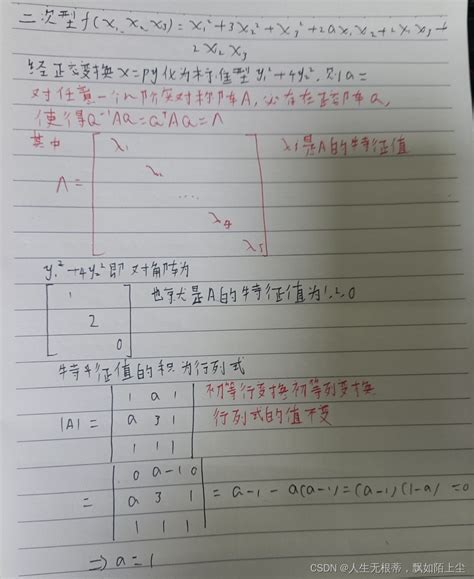 二次型f(x₁, x₂, x₃) = x₁² + 3x₂² + x₃² + 2ax₁x₂ + 2x₁x₃ +
2x₂x₃
经正交变换x=py化为标准型y₁²+4y₂², 则a=
对任意一个n阶实对称阵A, 必存在正交阵Q,
使得Q⁻¹AQ=QᵀAQ=Λ
其中 λᵢ是A的特征值
Λ =
λ₁
⋯
y₁²+4y₂²即对角阵为
1
2 也就是A的特征值为1, 2, 0
0
特征值的积为行列式
1 a 1 初等行变换初等列变换
|A| = a 3 1 行列式的值不变
1 1 1
0 a-1 0
= a 3 1 = a-1-a(a-1)=(a-1)(1-a)=0
1 1 1
⇒ a=1
CSDN @人生无根蒂，飘如陌上尘